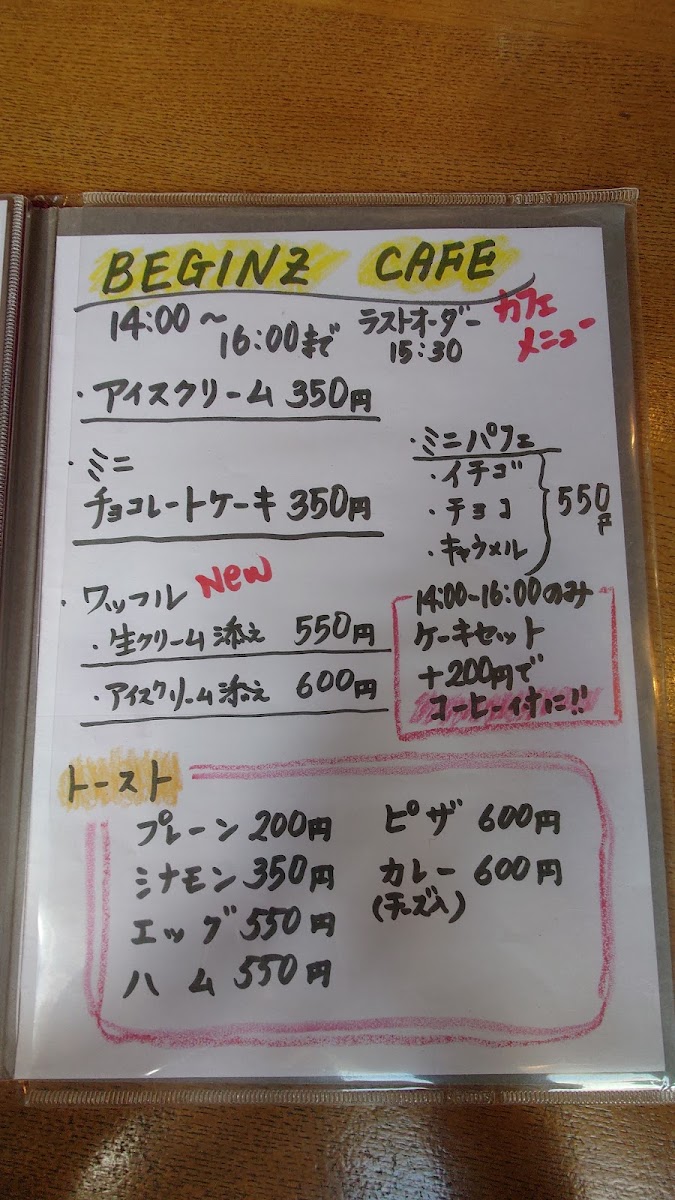 BEGINZ CAFE
14:00〜16:00まで
ラストオーダー
15:30
カフェ
メニュー
・アイスクリーム 350円
・ミニ
チョコレートケーキ 350円
・ワッフル New
・生クリーム添え 550円
・アイスクリーム添え 600円
・ミニパフェ
・イチゴ
・チョコ
・キャラメル
550円
14:00-16:00のみ
ケーキセット
+200円で
コーヒー付に!!
トースト
プレーン 200円
ミナモン 350円
エッグ 550円
ハム 550円
ピザ 600円
カレー 600円
(チーズ入)